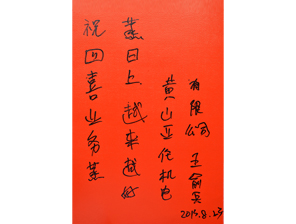 祝四喜业务蒸
蒸日上 越来越好
黄山亚佗机电
有限公司 王俞兵
2015.8.23